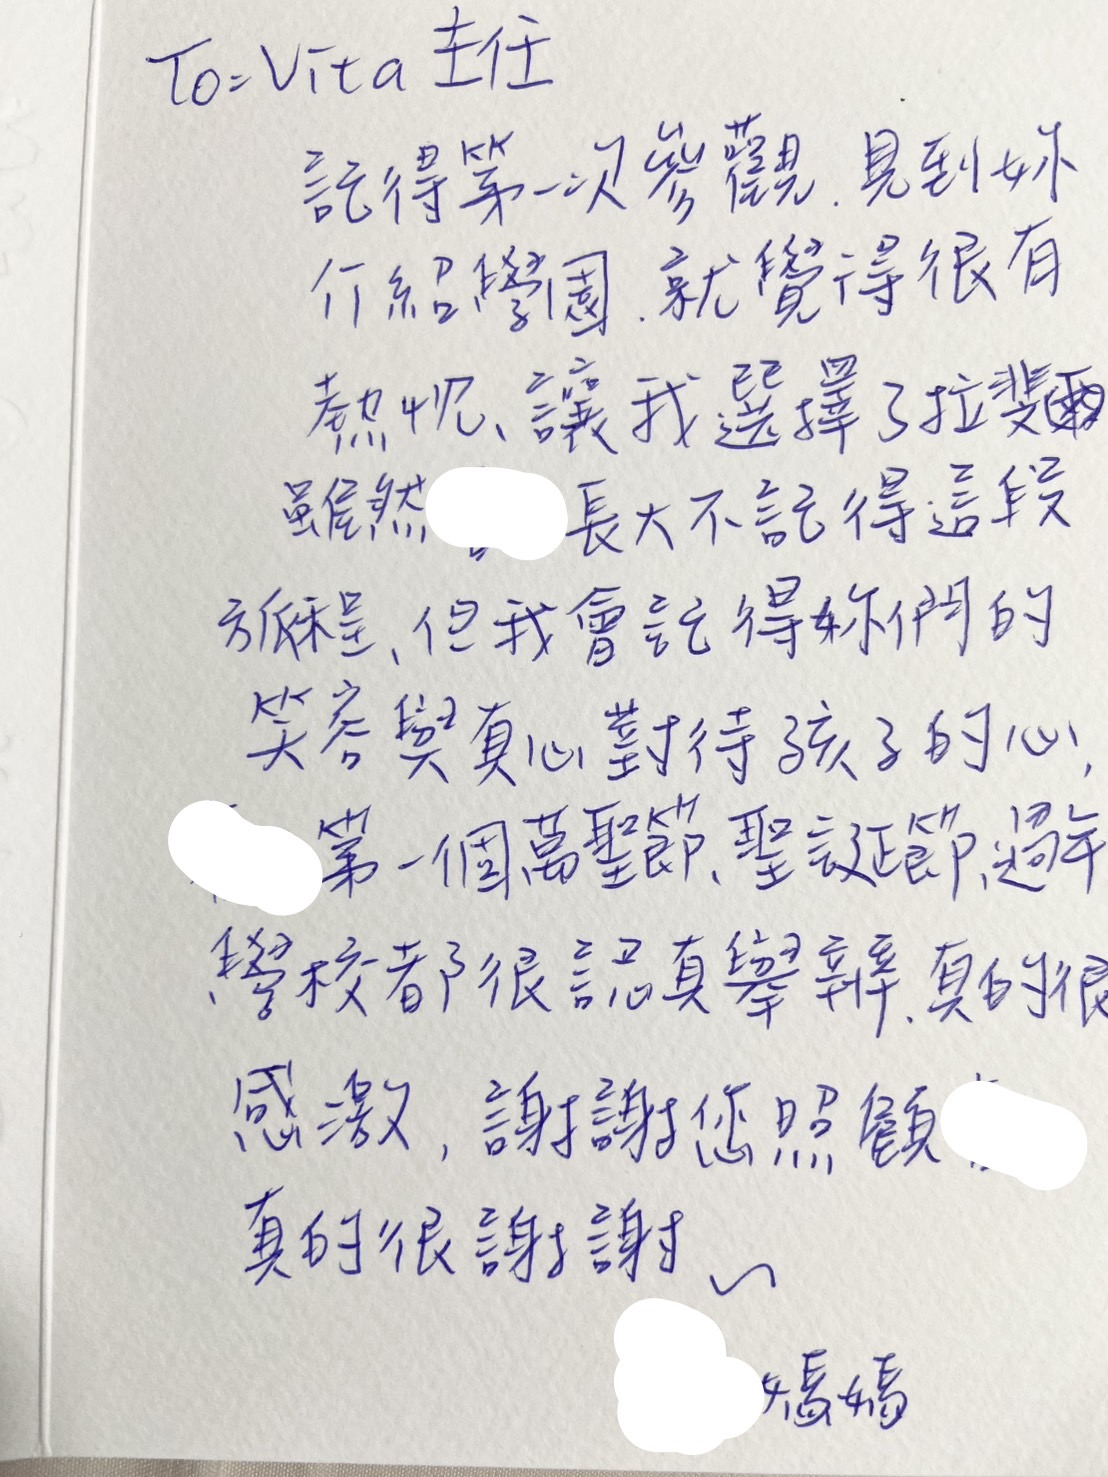 To=Vita 主任
記得第一次參觀.見到妳
介紹學園.就覺得很有
熱忱、讓我選擇了拉斐爾
雖然 長大不記得這段
旅程、但我會記得妳們的
笑容與真心對待孩子的心,
第一個萬聖節、聖誕節、過年
學校都很認真舉辦.真的很
感激,謝謝您照顧
真的很謝謝~
媽媽